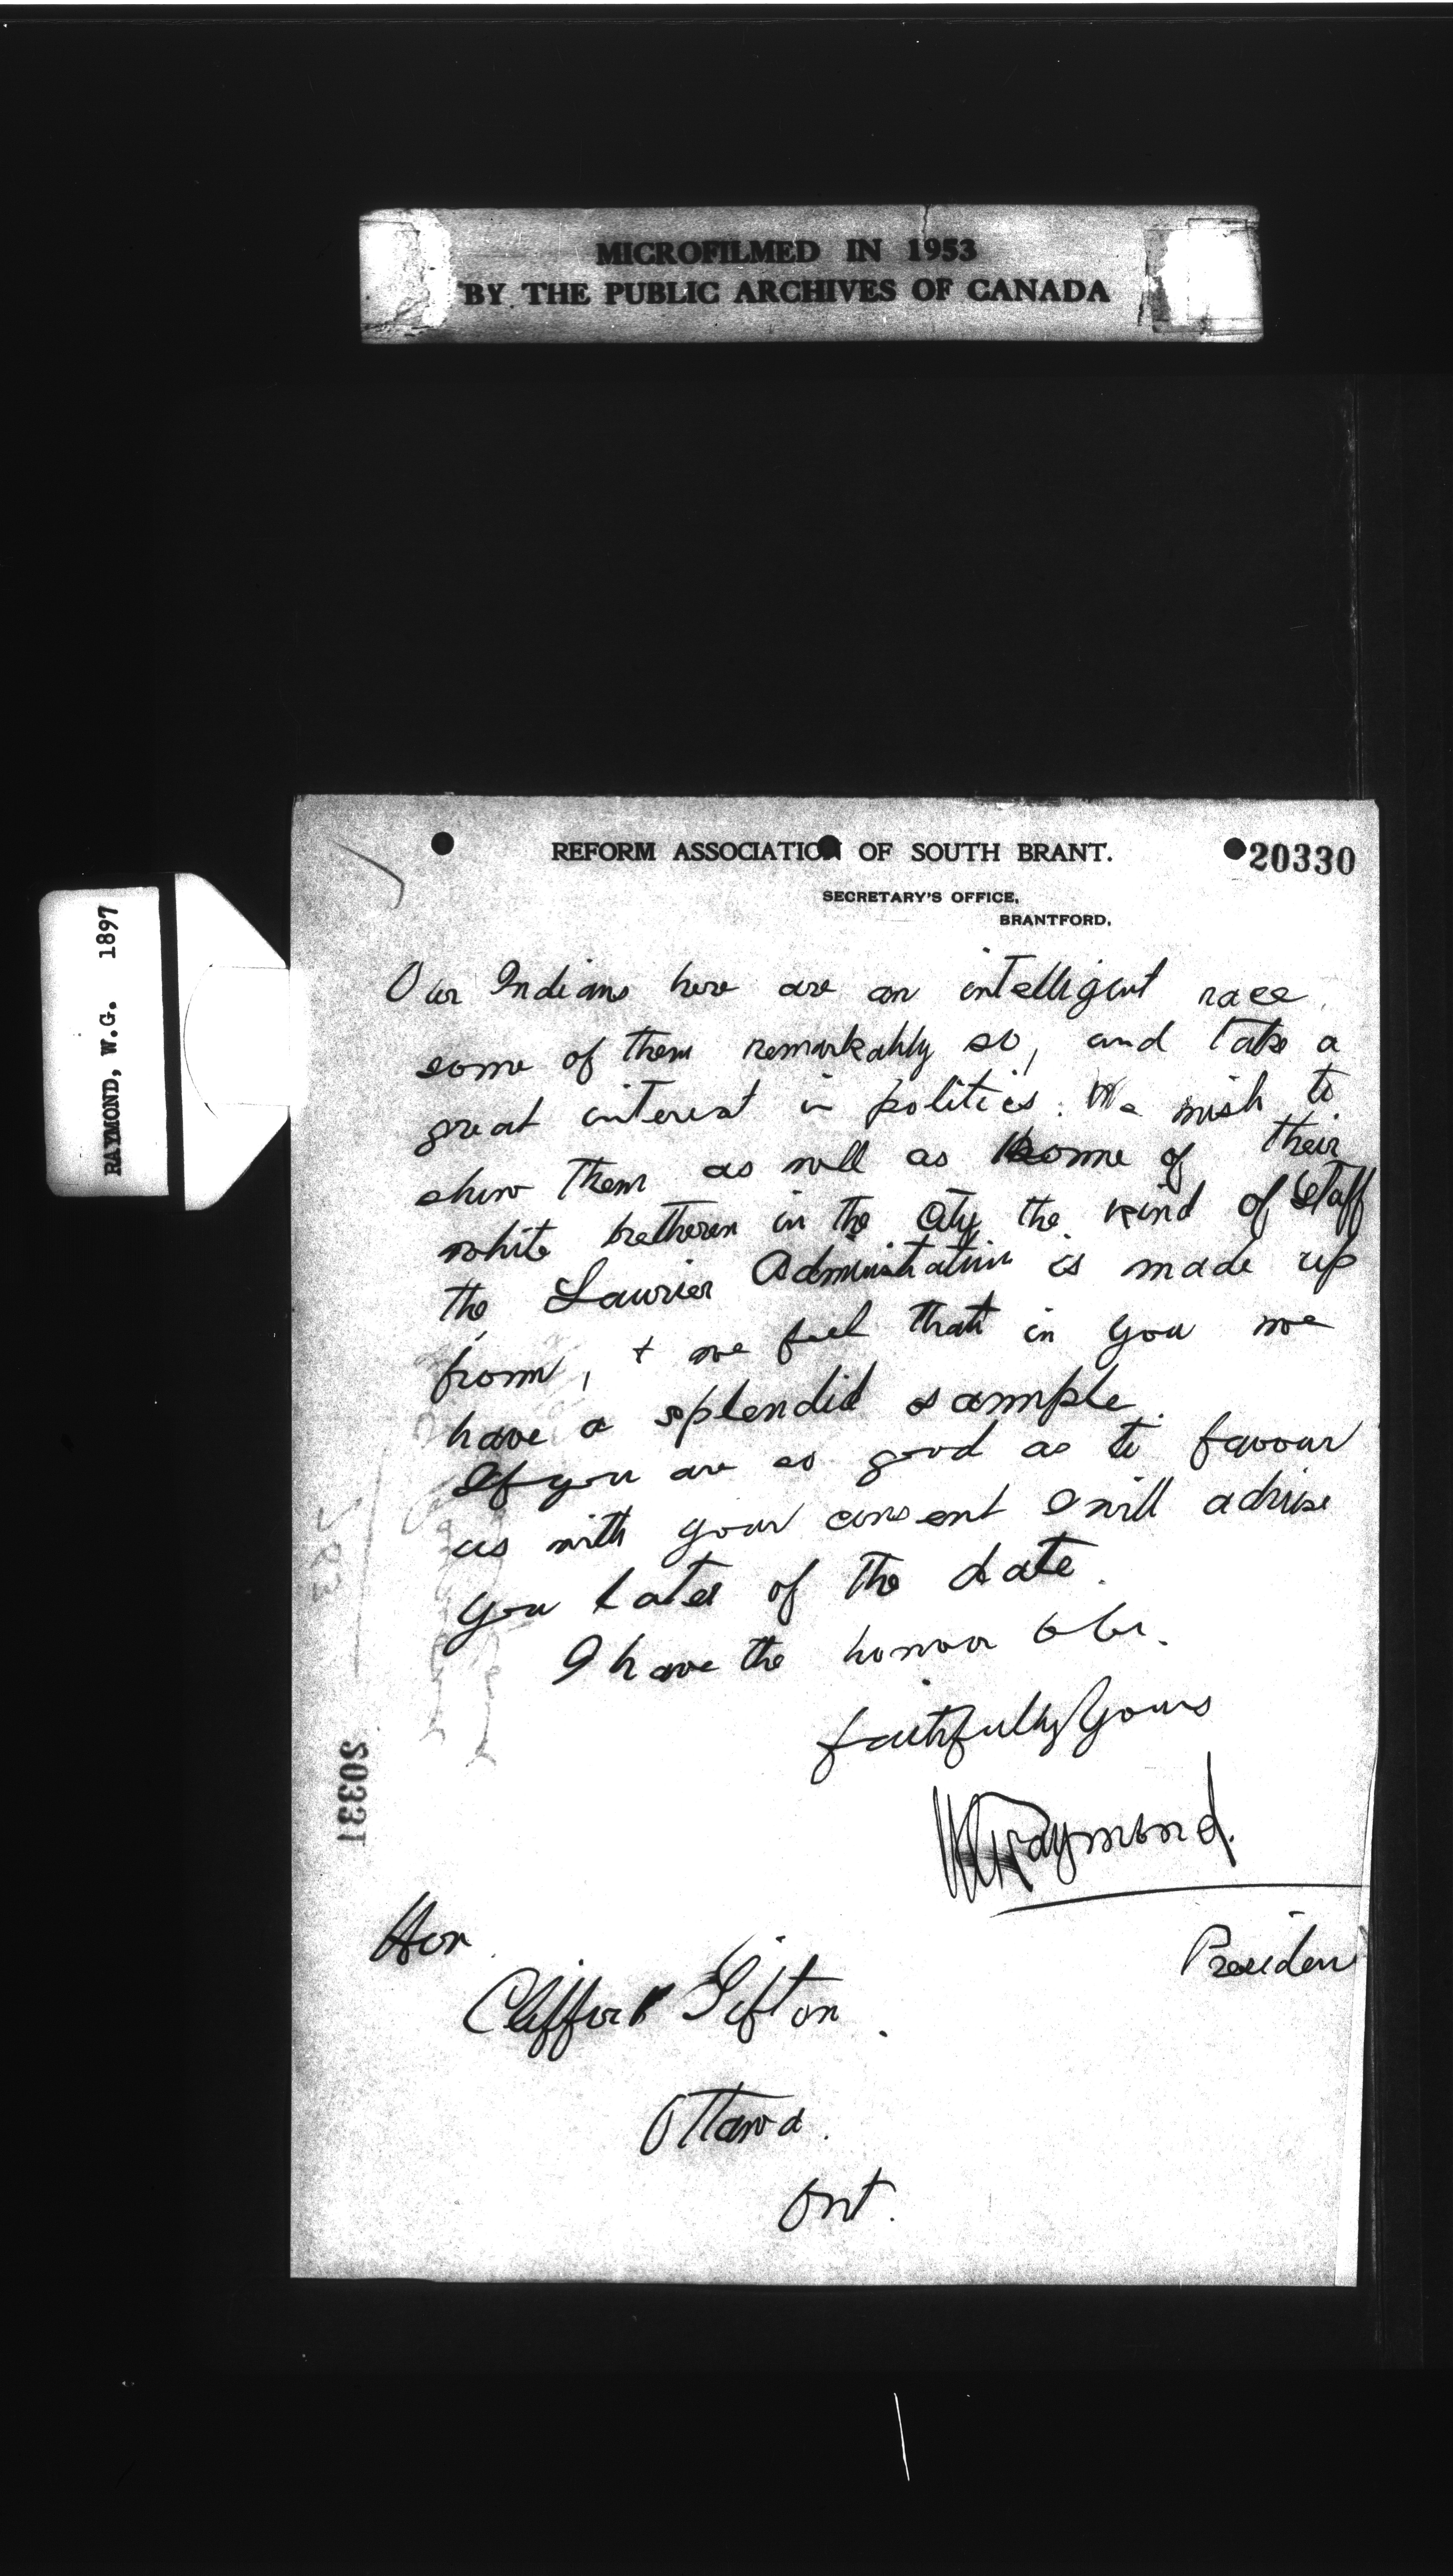 MICROFILMED IN 1953
BY THE PUBLIC ARCHIVES OF CANADA
RAYMOND, W.G. 1897
REFORM ASSOCIATION OF SOUTH BRANT.
20330
SECRETARY'S OFFICE,
BRANTFORD,
Our Indians here are an intelligent race
some of them remarkably so, and take a
great interest in politics. We wish to
show them as well as some of their
white bretheren in the City the kind of staff
the Laurier Administration is made up
from, + we feel that in you we
have a splendid sample.
If you are so good as to favour
us with your consent I will advise
you later of the date.
I have the honour to be.
faithfully Yours
WGRaymond.
President
Hon
Clifford Sifton.
Ottawa.
Ont.
20331